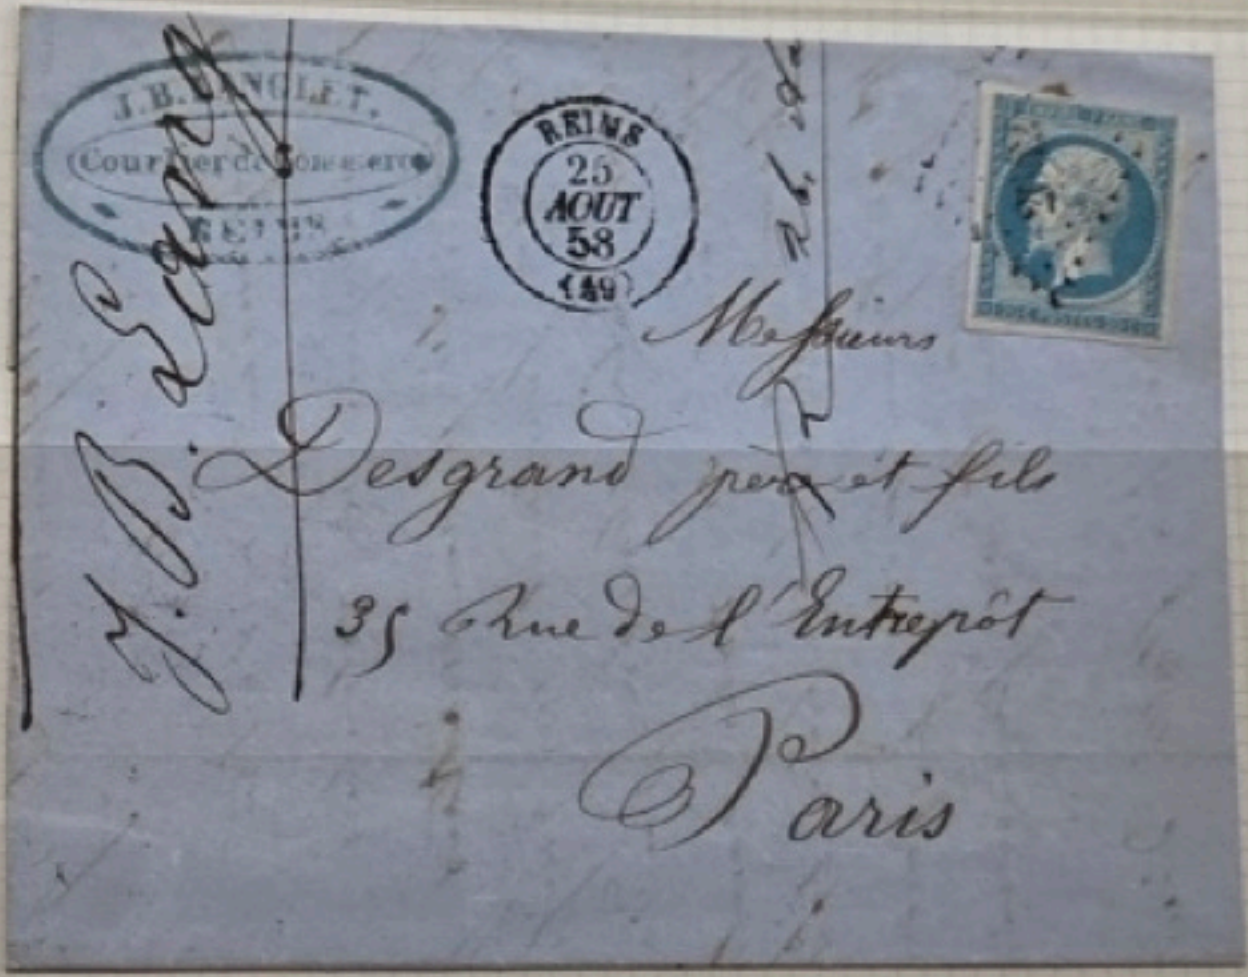 J.B. LANGLET.
Courtier de Commerce
REIMS
REIMS
25
AOUT
58
(49)
Messieurs
Desgrand père et fils
35 Rue de l'Entrepôt
Paris
J. B. Lang